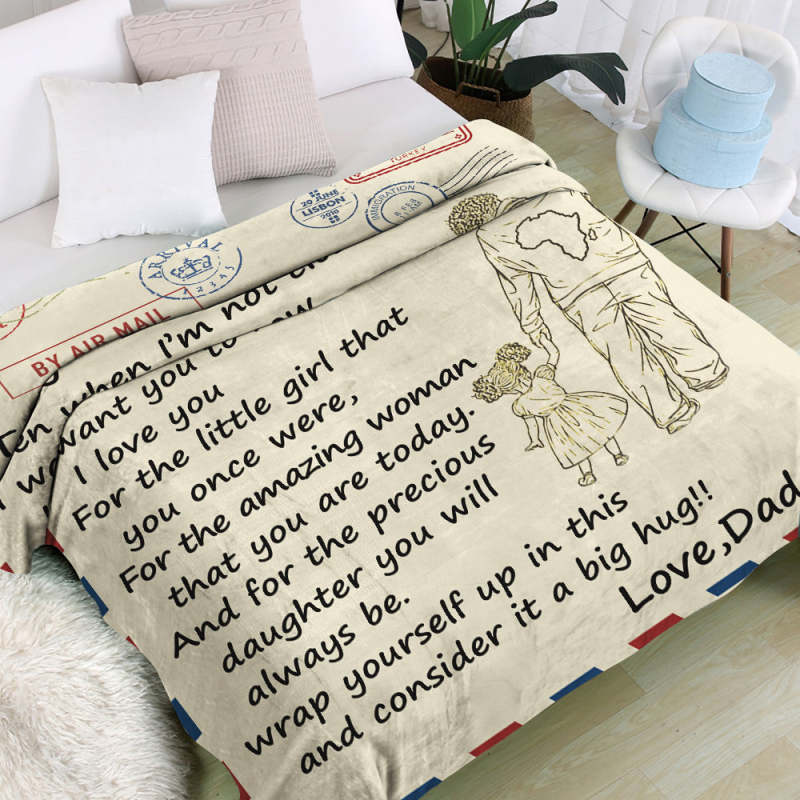 TURKEY
29 JUNE
LISBON
2019
IMMIGRATION
ARRIVAL
1 2 3 4 5
BY AIR MAIL
when I'm not
want you to
I love you
For the little girl that
you once were,
For the amazing woman
that you are today.
And for the precious
daughter you will
always be.
wrap yourself up in this
and consider it a big hug!!
Love,Dad